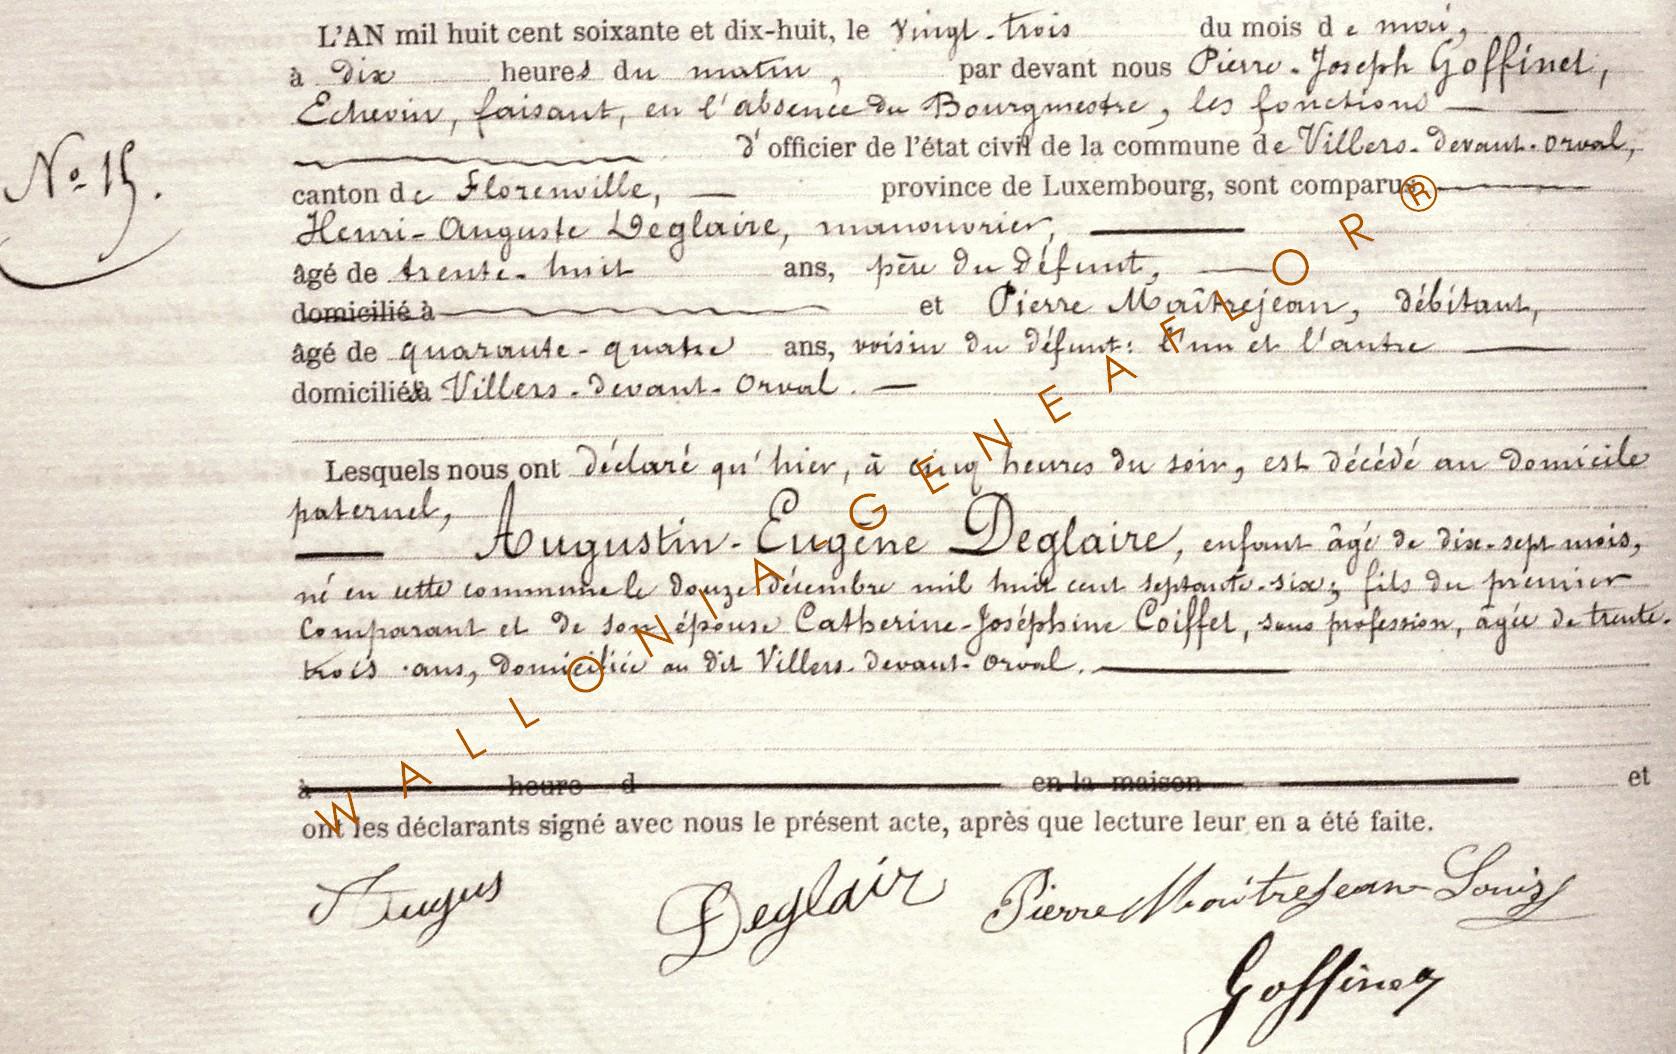 L'AN mil huit cent soixante et dix-huit, le vingt-trois du mois de mai,
à dix heures du matin, par devant nous Pierre-Joseph Goffinet,
Echevin, faisant, en l'absence du Bourgmestre, les fonctions
d'officier de l'état civil de la commune de Villers-devant-Orval,
N° 15.
canton de Florenville, province de Luxembourg, sont comparus
Henri-Auguste Deglaire, manouvrier,
âgé de trente-huit ans, père du défunt,
domicilié à et Pierre Maîtrejean, débitant,
âgé de quarante-quatre ans, voisin du défunt: l'un et l'autre
domiciliés à Villers-devant-Orval.
Lesquels nous ont déclaré qu'hier, à cinq heures du soir, est décédé au domicile
paternel,
Augustin-Eugène Deglaire, enfant âgé de dix-sept mois,
né en cette commune le douze décembre mil huit cent septante-six; fils du premier
Comparant et de son épouse Catherine-Joséphine Coiffet, sans profession, âgée de trente-
trois ans, domiciliée au dit Villers-devant-Orval.
à heure d en la maison et
ont les déclarants signé avec nous le présent acte, après que lecture leur en a été faite.
Augus Deglair Pierre Maitrejean Louis
Goffinet
WALLONIA GENEAFLOR®